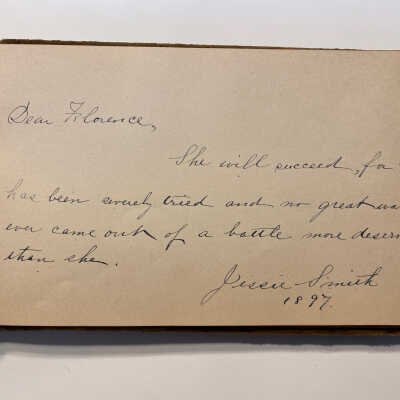 Dear Florence,
She will succeed, for
has been sorely tried and no great
ever came out of a battle more
than she.
Jessie Smith
1897.